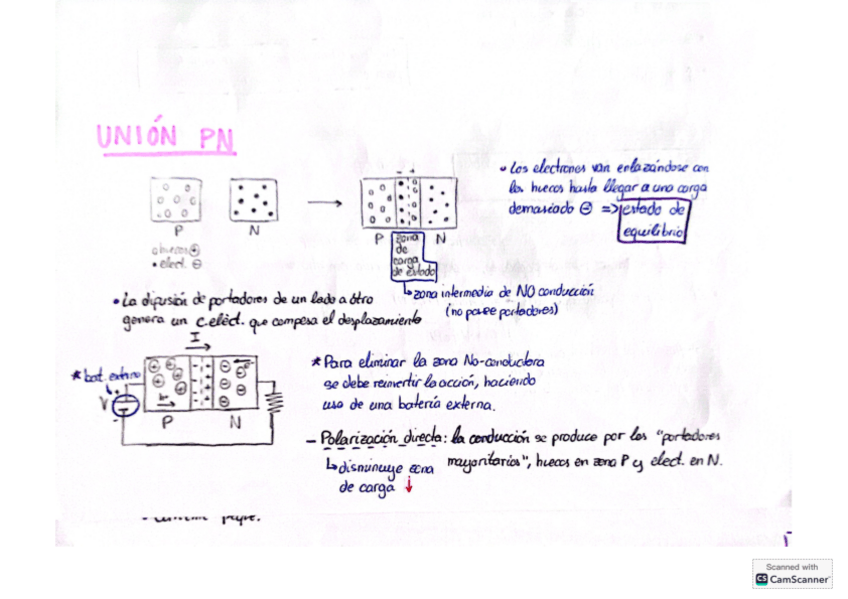 UNIÓN PN
P
N
o huecos ⊕
• elect. ⊖
- +
P
zona
de
carga
de estado
N
↳ zona intermedia de NO conducción
(no posee portadores)
• Los electrones van enlazándose con
los huecos hasta llegar a una carga
demasiado ⊖ => estado de
equilibrio
• La difusión de portadores de un lado a otro
genera un c.eléct. que compesa el desplazamiento
I
* bat. externa
V
+
-
P
N
* Para eliminar la zona No-conductora
se debe reinvertir la acción, haciendo
uso de una batería externa.
– Polarización directa: la conducción se produce por los "portadores
mayoritarios", huecos en zona P y elect. en N.
↳ disminuye zona
de carga ↓
Scanned with
CS CamScanner